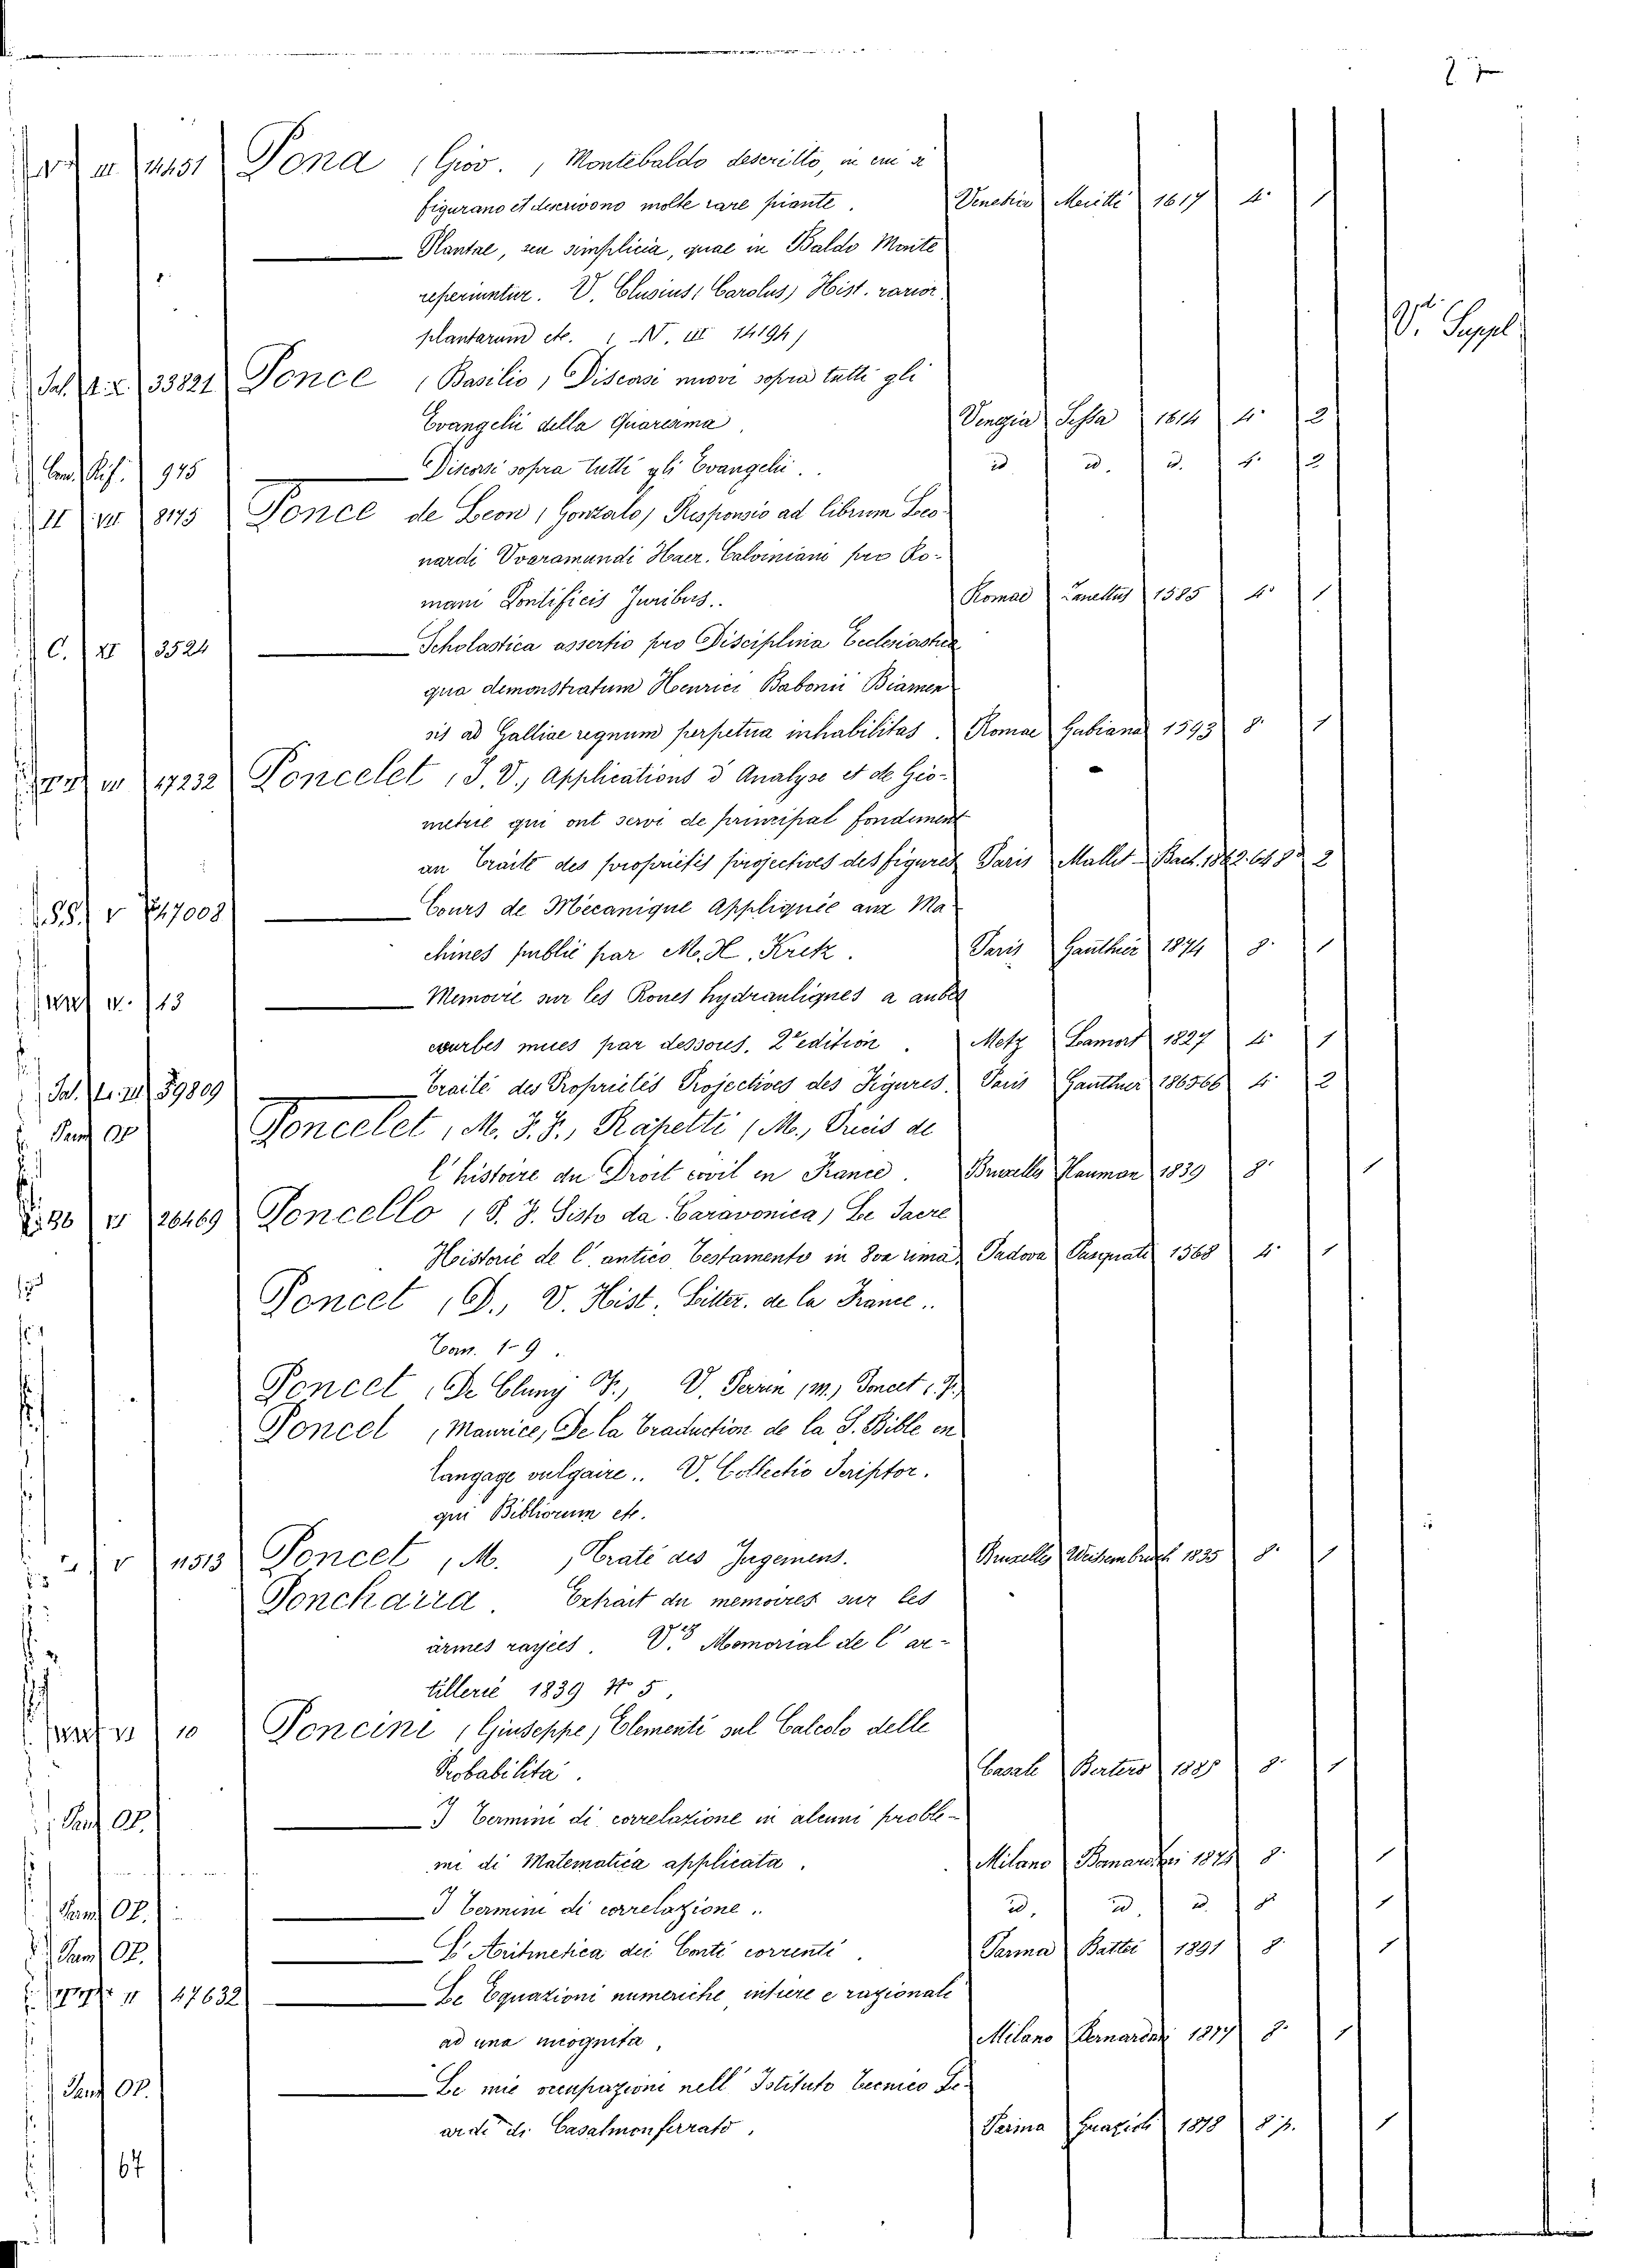 27
14451 Pona (Giov.), Montebaldo descritto, in cui si
figurano et descrivono molte rare piante. Venetia Meietti 1617 4° 1
Plantae, seu simplicia, quae in Baldo Monte
reperiuntur. V. Clusius (Carolus) Hist. rarior.
plantarum etc. (N. III 14194) Vi Suppl
Sal. 33821 Ponce (Basilio), Discorsi nuovi sopra tutti gli
Evangelii della Quaresima. Venezia Sessa 1614 4° 2
Com. Rif. 975 Discorsi sopra tutti gli Evangeli. id id. id. 4° 2
II VII 8175 Ponce de Leon (Gonzalo) Responsio ad librum Leo-
nardi Vvaramundi Haer. Calviniani pro Ro-
mani Pontificis Juribus. Romae Zanettus 1585 4° 1
C. XI 3524 Scholastica assertio pro Disciplina Ecclesiastica
qua demonstratum Henrici Babonii Biarnen
sis ad Galliae regnum perpetua inhabilitas. Romae Gabiana 1593 8° 1
17232 Poncelet (J. V.), Applications d'Analyse et de Géo-
metrie qui ont servi de principal fondement
au Traité des propriétés projectives des figures Paris Mallet-Bach. 1862.64 8° 2
SS. V 47008 Cours de Mécanique Appliquée aux Ma
chines publié par M. H. Kretz. Paris Gauthier 1874 8° 1
13 Memoire sur les Roues hydrauliques a aubes
courbes mues par dessous. 2e edition. Metz Lamort 1827 4° 1
Sal. 39809 Traité des Propriétés Projectives des Figures. Paris Gauthier 186566 4° 2
Pam OP Poncelet, M. F. F., Rapetti (M.), Précis de
l'histoire du Droit civil en France. Bruxelles Hauman 1839 8° 1
86 VI 26469 Poncello (P. F. Sisto da Caravonica) Le Sacre
Historie de l'antico Testamento in 8va rima. Padova Pasquati 1568 4° 1
Poncet (D., V. Hist. Litter. de la France..
Tom. 1-9.
Poncet (De Cluny F., V. Perrin (M.), Poncet (F.)
Poncet (Maurice) De la Traduction de la S. Bible en
langage vulgaire.. V. Collectio Scriptor.
qui Bibliorum etc.
V 11513 Poncet (M. ) Traté des Jugemens. Bruxelles Weissenbruch 1835 8° 1
Poncharra. Extrait du memoires sur les
armes rayées. V. Memorial de l'ar-
tillerie 1839 N° 5.
VI 10 Poncini (Giuseppe) Elementi sul Calcolo delle
Probabilità. Casale Bertero 1885 8° 1
Pam OP. I Termini di correlazione in alcuni proble-
mi di Matematica applicata. Milano Bernardoni 1878 8° 1
Pam OP. I Termini di correlazione.. id. id. id. 8° 1
Pam OP. L'Aritmetica dei Conti correnti. Parma Battei 1891 8° 1
47632 Le Equazioni numeriche, intiere e razionali
ad una incognita, Milano Bernardoni 1877 8° 1
Pam OP. Le mie occupazioni nell'Istituto Tecnico Le-
ardi di Casalmonferrato, Parma Grazioli 1878 8° p. 1
67